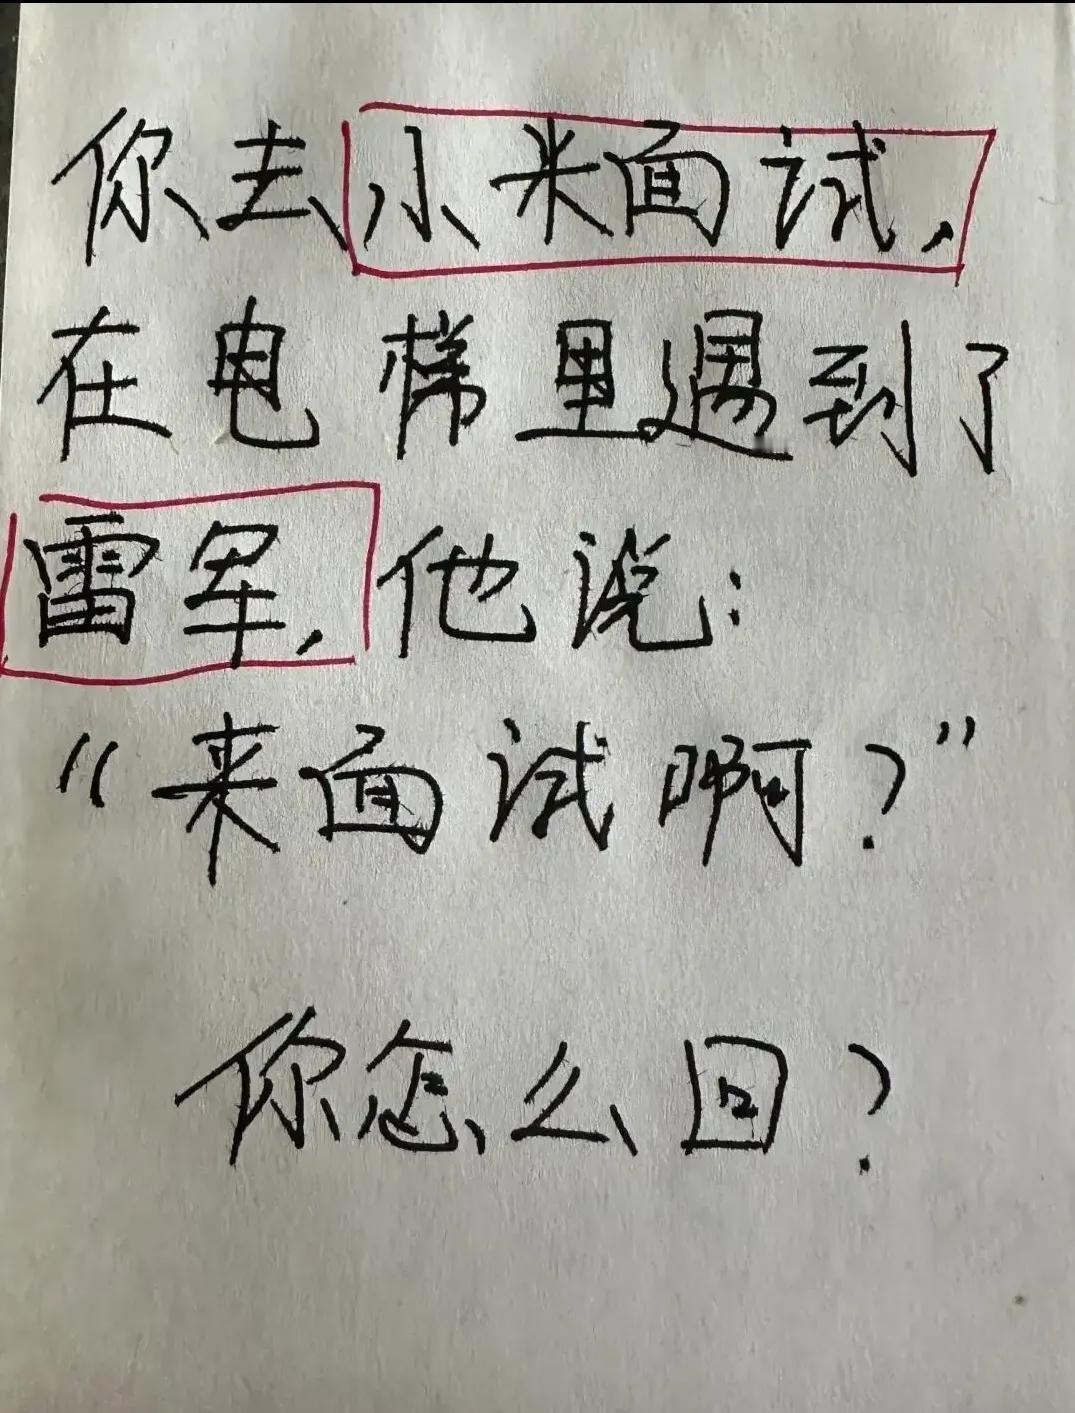 你去小米面试，
在电梯里遇到了
雷军，他说：
“来面试啊？”
你怎么回？